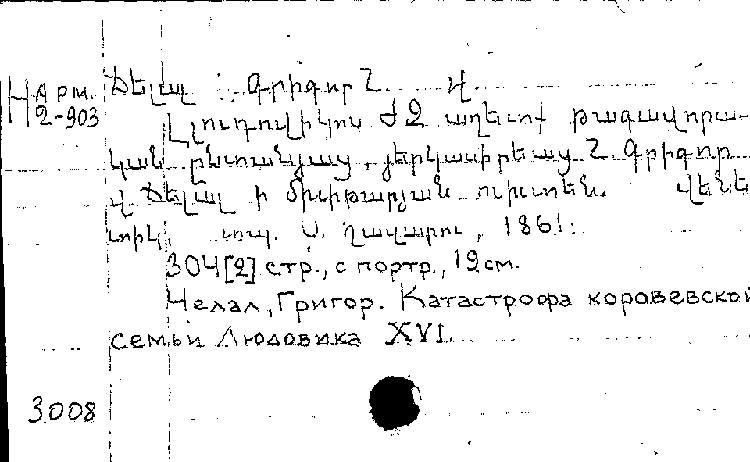 Н АРМ. 2-903
Ճելալ Գրիգոր Հ. Վ.
Լլուդովիկոս ԺԶ աղետով թագավորա-
կան ընտանյաց, յերկասիրեաց Հ. Գրիգոր
Վ Ճելալ ի մխիթարյան ուխտեն. Վենե
տիկ, տպ. Ս. Ղազարու, 1861:
304[2] стр., с портр., 19 см.
Челал, Григор. Катастрофа королевской
семьи Людовика XVI.
3008